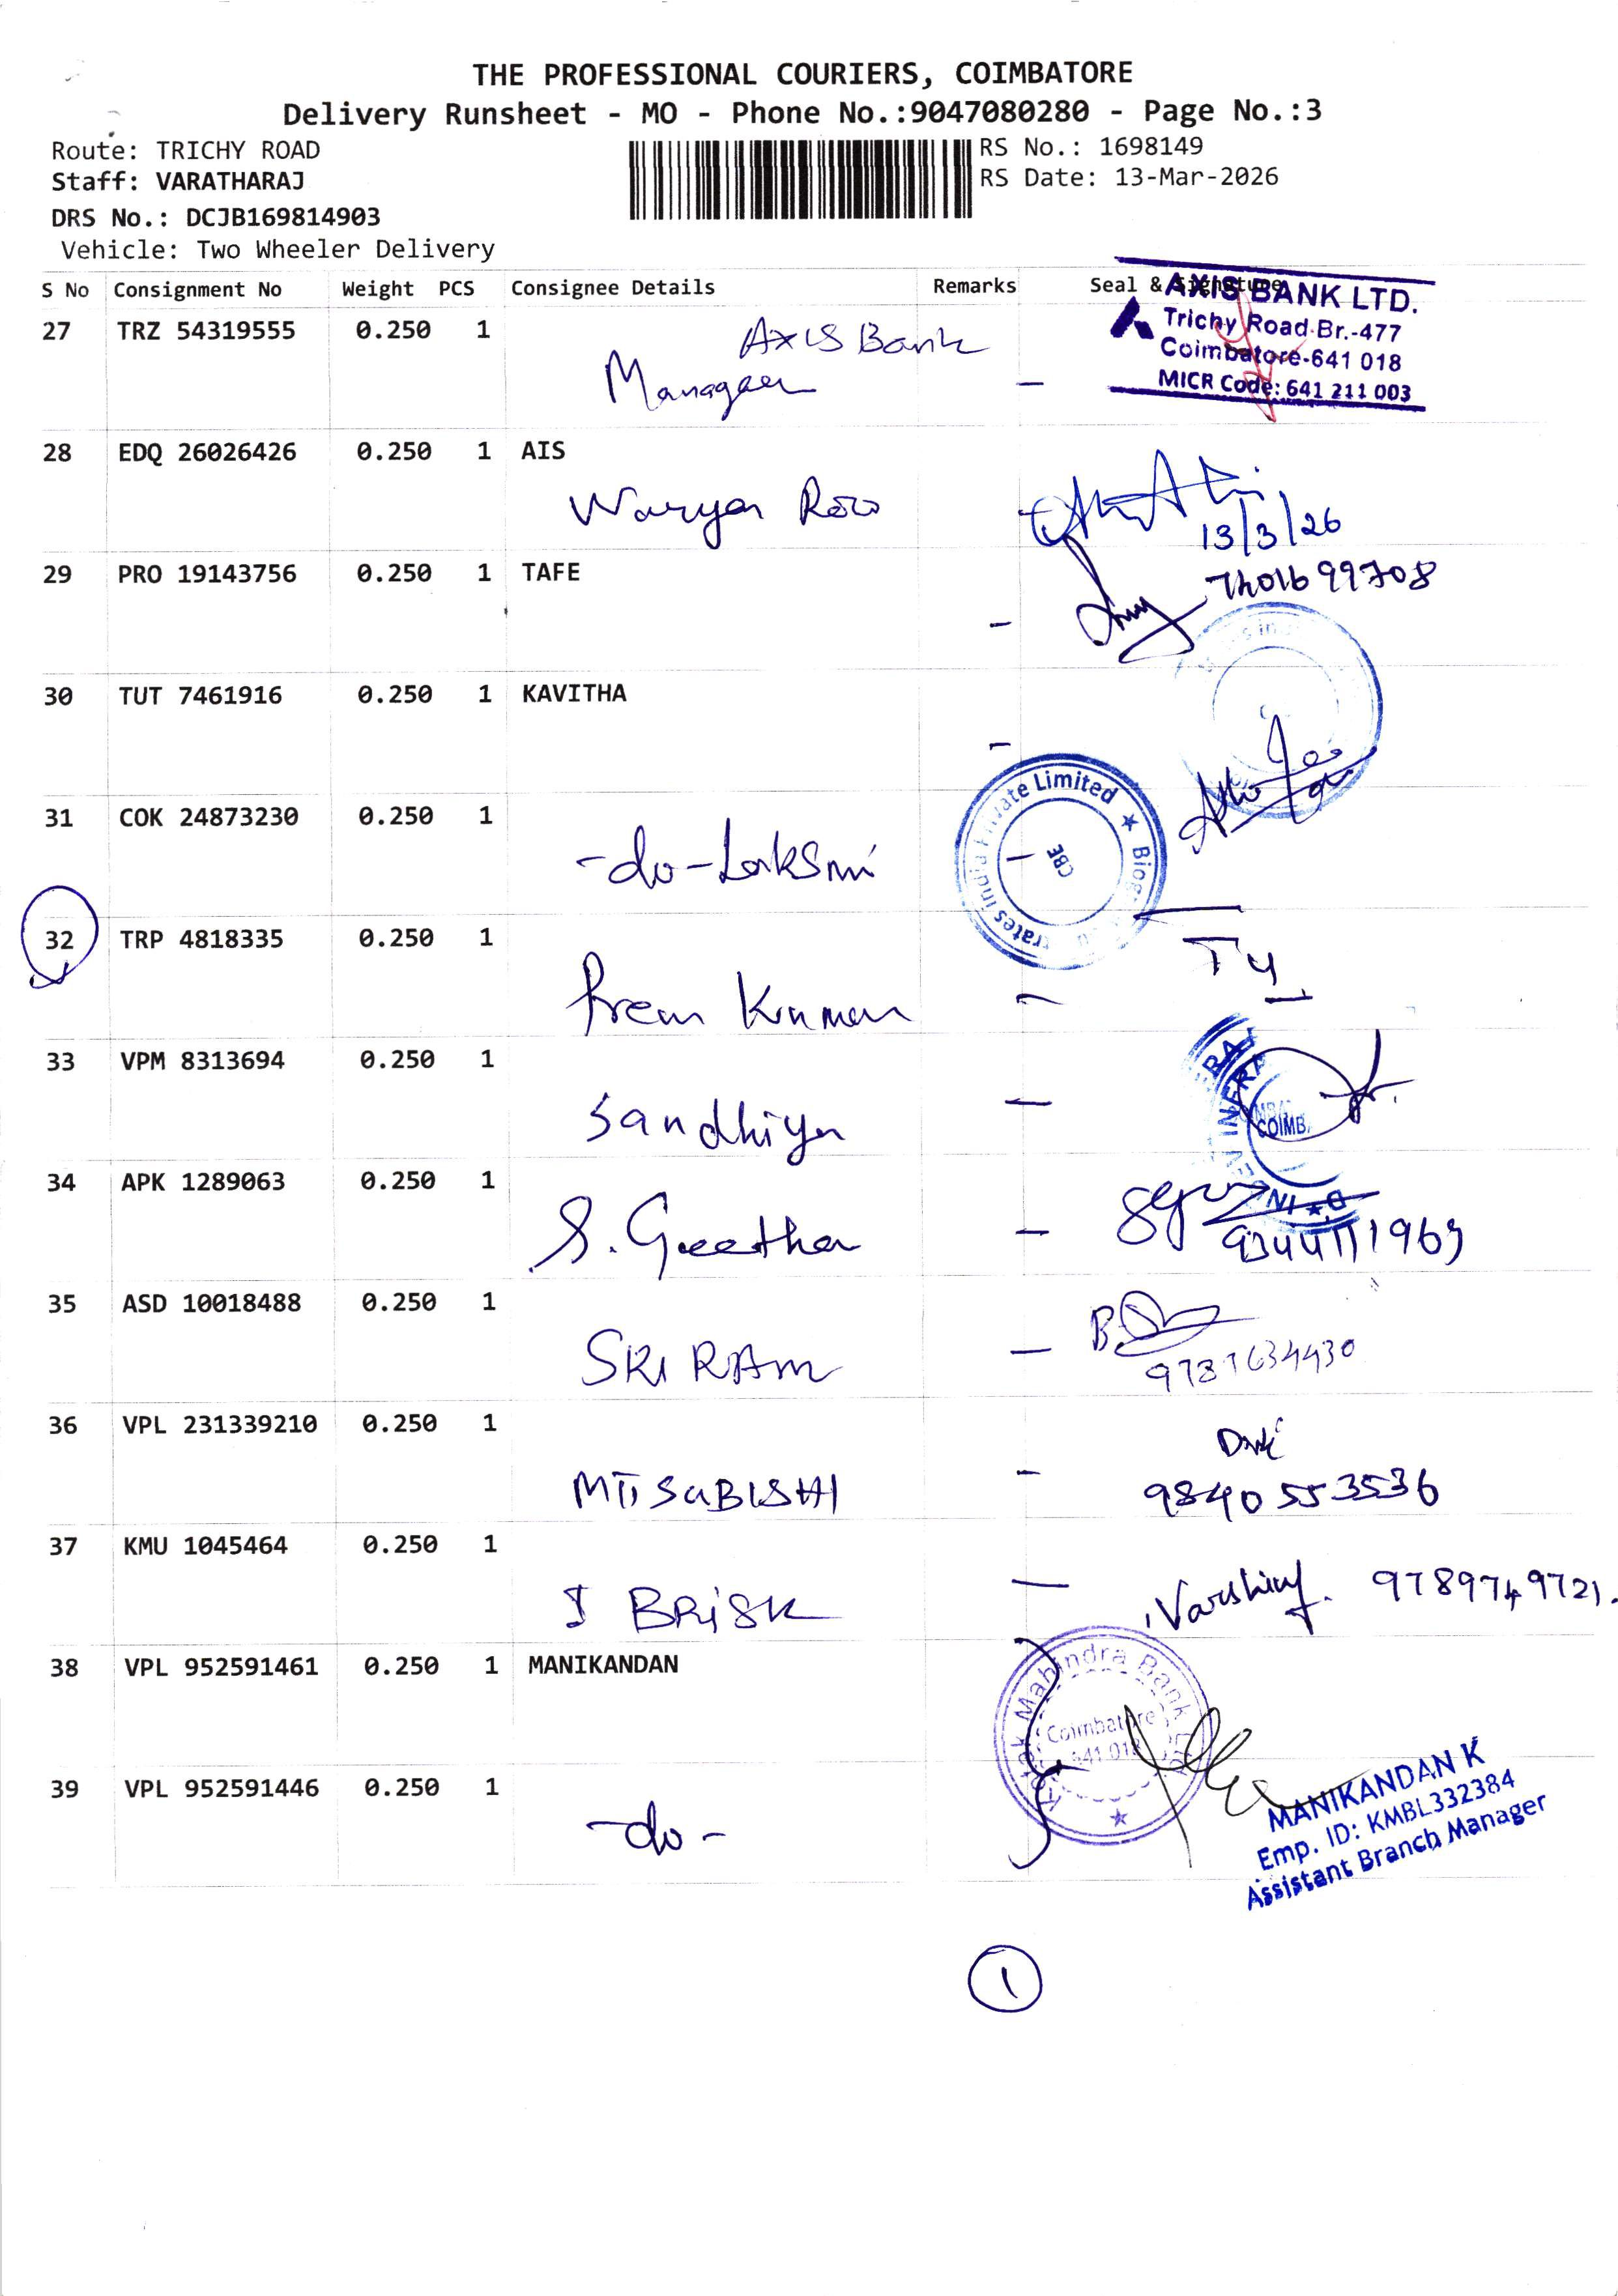 THE PROFESSIONAL COURIERS, COIMBATORE
Delivery Runsheet - MO - Phone No.:9047080280 - Page No.:3
Route: TRICHY ROAD
Staff: VARATHARAJ
DRS No.: DCJB169814903
Vehicle: Two Wheeler Delivery
RS No.: 1698149
RS Date: 13-Mar-2026
S No Consignment No Weight PCS Consignee Details Remarks Seal & Signature
AXIS BANK LTD.
Trichy Road Br.-477
Coimbatore-641 018
MICR Code: 641 211 003
27 TRZ 54319555 0.250 1 Axis Bank
Manager
28 EDQ 26026426 0.250 1 AIS
13/3/26
29 PRO 19143756 0.250 1 TAFE
30 TUT 7461916 0.250 1 KAVITHA
31 COK 24873230 0.250 1
-do- Laksmi
Private Limited
CBE
32 TRP 4818335 0.250 1
Prem Kumar
33 VPM 8313694 0.250 1
Sandhiya
INFRA
COIMB
34 APK 1289063 0.250 1
S. Geetha
35 ASD 10018488 0.250 1
SRI RAM
36 VPL 231339210 0.250 1
MTISUBISHI
98405 53536
37 KMU 1045464 0.250 1
I BRISK
9789749721.
38 VPL 952591461 0.250 1 MANIKANDAN
Kotak Mahindra Bank Ltd
Coimbatore
641 018
39 VPL 952591446 0.250 1
-do-
MANIKANDAN K
Emp. ID: KMBL332384
Assistant Branch Manager
1